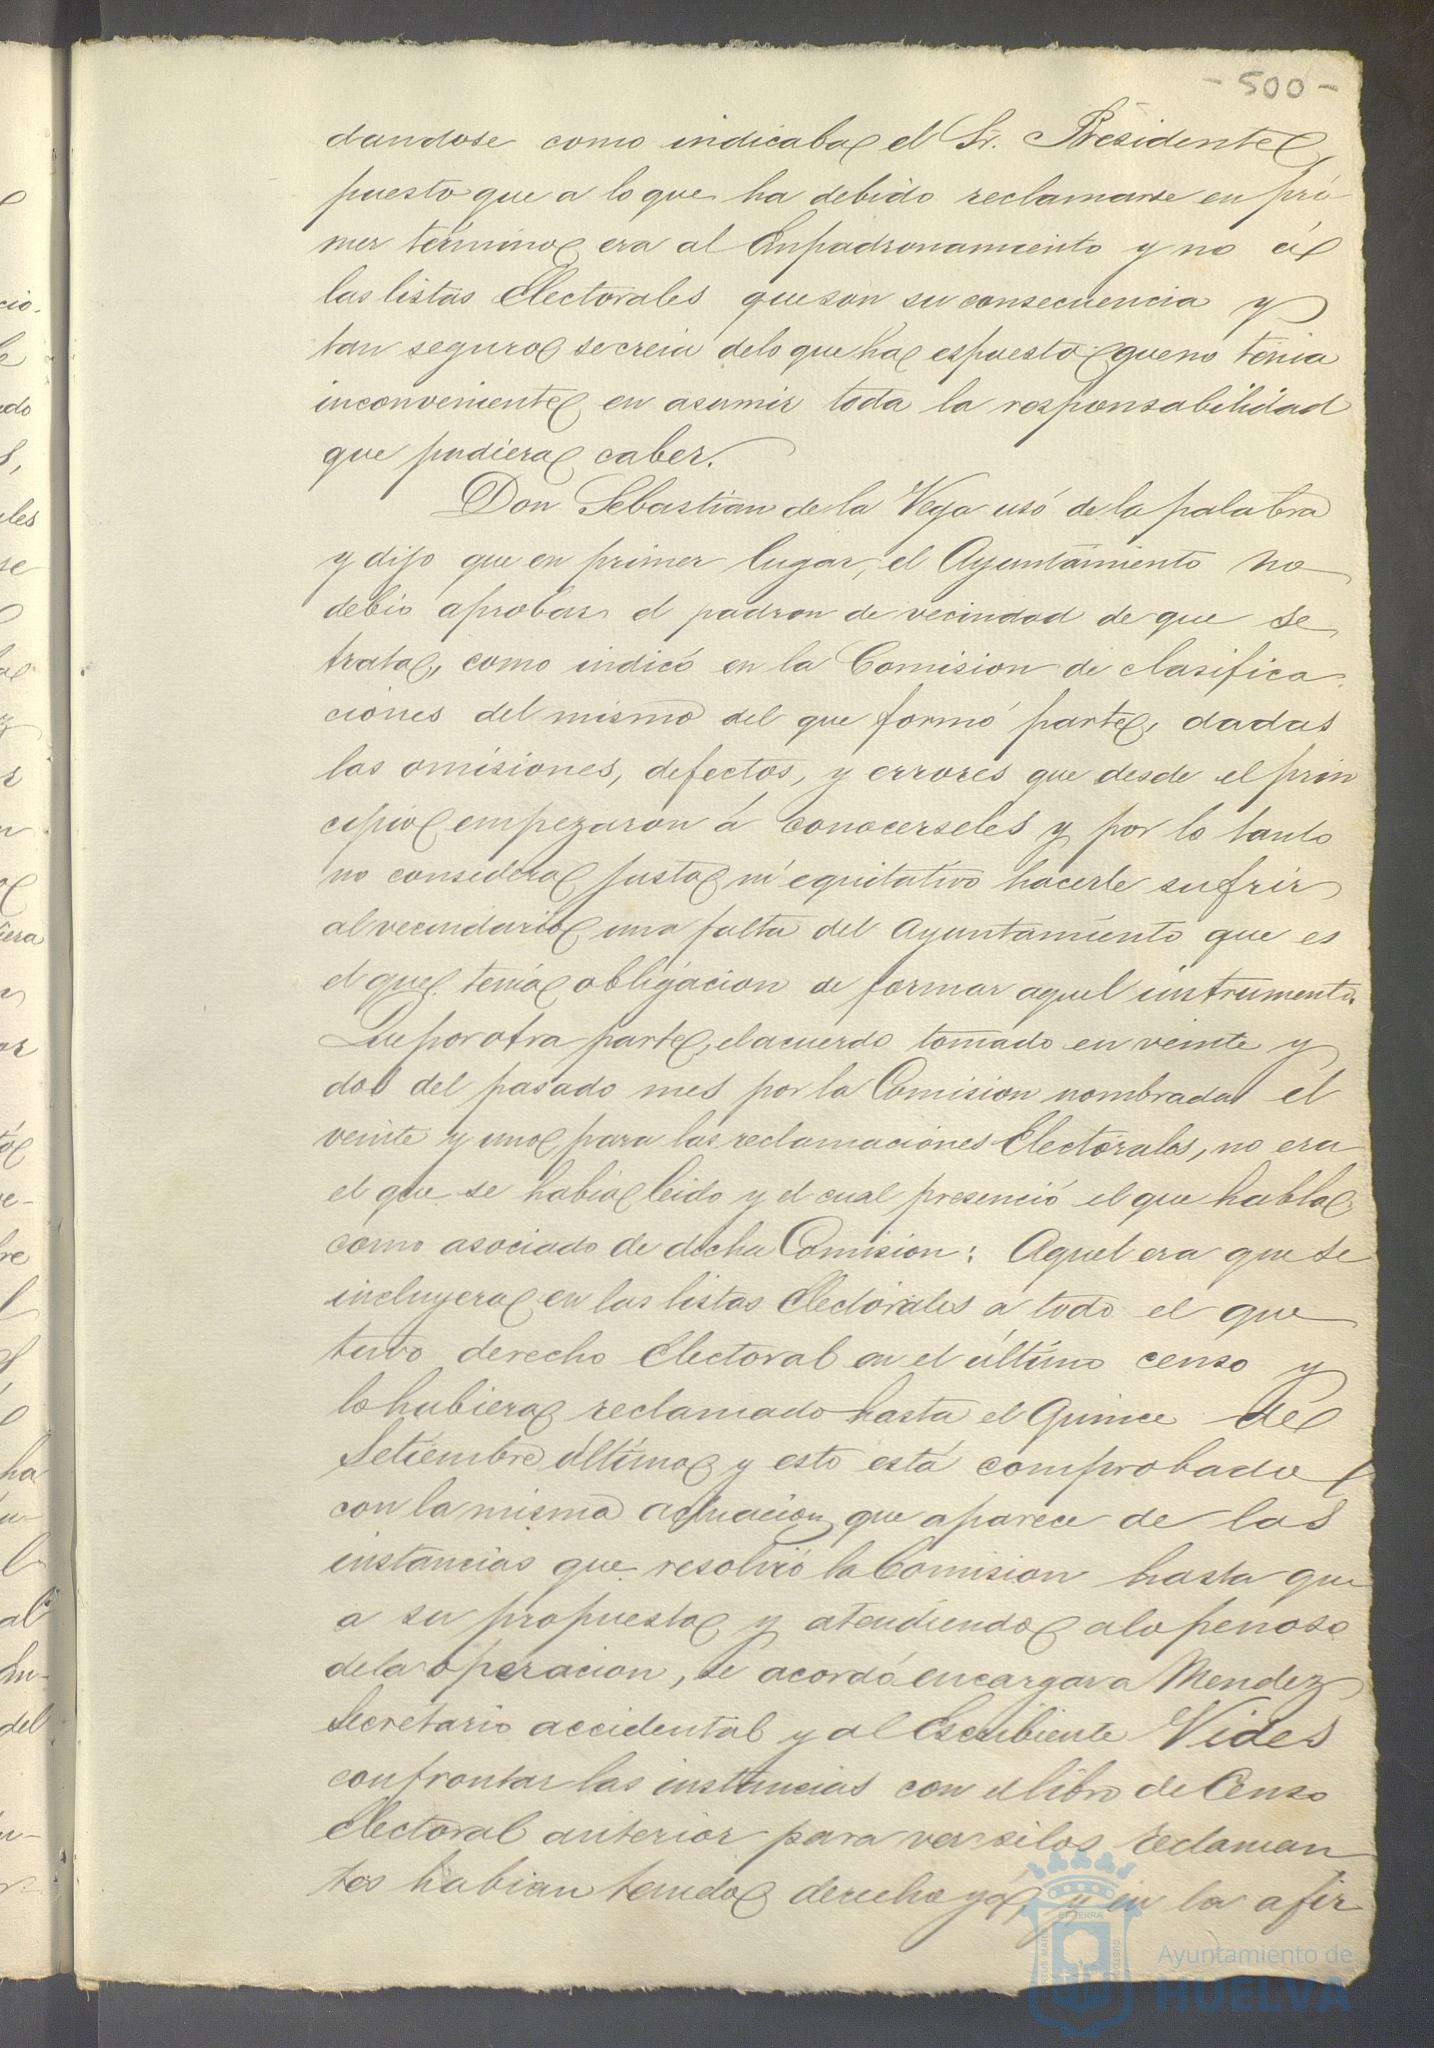 - 500 -
dandose como indicaba el Sr. Presidente,
puesto que a lo que ha debido reclamarse en pri-
mer término era al Empadronamiento y no á
las listas Electorales que son su consecuencia y
tan seguro se creia de lo que ha espuesto que no tenia
inconveniente en asumir toda la responsabilidad
que pudiera caber.
Don Sebastian de la Vega usó de la palabra
y dijo que en primer lugar, el Ayuntamiento no
debió aprobar el padron de vecindad de que se
trata, como indicó en la Comision de clasifica-
ciones del mismo del que formó parte, dadas
las omisiones, defectos, y errores que desde el prin
cipio empezaron á conocerseles y por lo tanto
no considera justa ni equitativo hacerle sufrir
al vecindario una falta del Ayuntamiento que es
el que tenia obligacion de formar aquel instrumento.
Que por otra parte, el acuerdo tomado en veinte y
dos del pasado mes por la Comision nombrada el
veinte y uno para las reclamaciones Electorales, no era
el que se habia leido y el cual presenció el que habla
como asociado de dicha Comision: Aquel era que se
incluyera en las listas Electorales a todo el que
tuvo derecho Electoral en el último censo y
lo hubiera reclamado hasta el Quince de
Setiembre último y esto está comprobado
con la misma actuacion que aparece de las
instancias que resolvió la Comision hasta que
a su propuesta y atendiendo a lo penoso
de la operacion, se acordó encargar a Mendez
Secretario accidental y al Escribiente Vides
confrontar las instancias con el libro de Censo
Electoral anterior para ver si los reclaman
tes habian tenido derecho ya, y en la afir
Ayuntamiento de
HUELVA